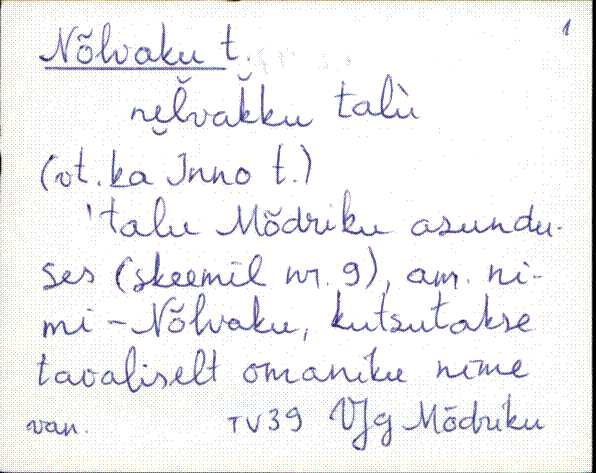 1
Nõlvaku t.
ne̮l̆vak̆ku talù
(vt. ka Inno t.)
'talu Mõdriku asundu-
ses (skeemil nr. 9), am. ni-
mi - Nõlvaku, kutsutakse
tavaliselt omaniku nime
van. TV39 VJg Mõdriku